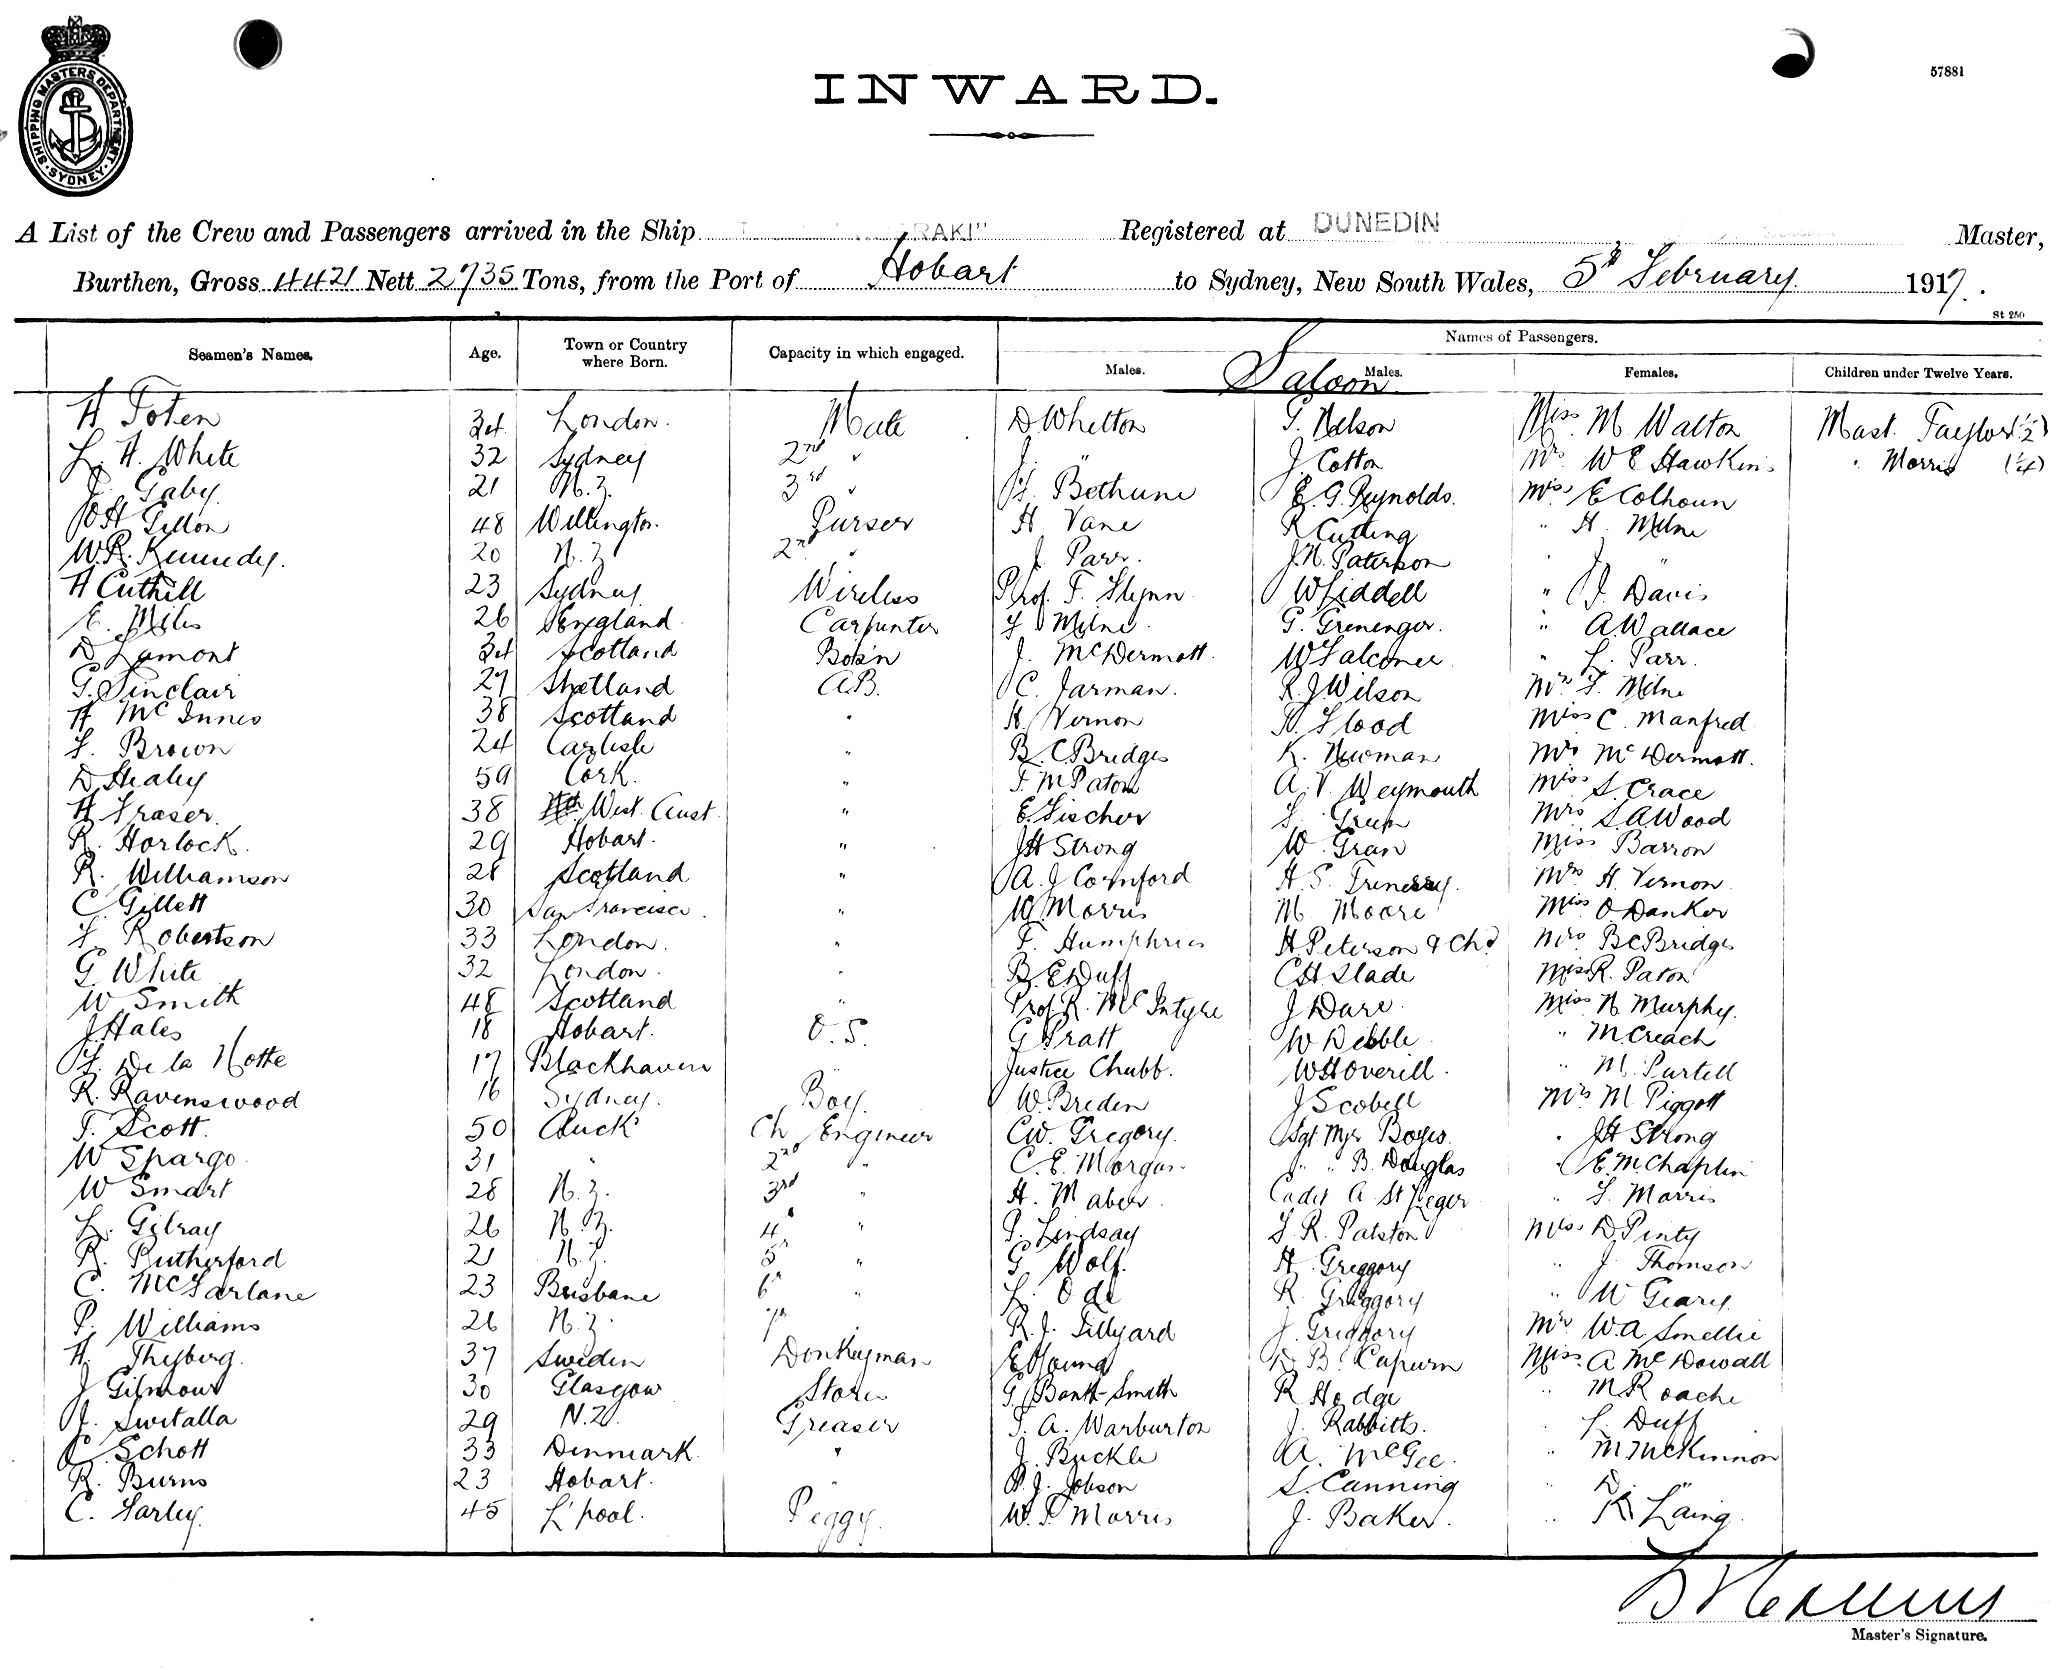 SHIPPING MASTERS DEPARTMENT. SYDNEY
57881
INWARD.
A List of the Crew and Passengers arrived in the Ship RAKI" Registered at DUNEDIN Master,
Burthen, Gross 4421 Nett 2735 Tons, from the Port of Hobart to Sydney, New South Wales, 5th February 1917.
St 250
Seamen's Names. Age. Town or Country where Born. Capacity in which engaged. Names of Passengers.
Males. Saloon Males. Females. Children under Twelve Years.
H Foten 34 London. Mate D Whelton T. Nelson Miss M Walton Mast. Taylor (½)
L. H. White 32 Sydney 2nd " J. " J Cotton Mrs W E Hawkins " Morris (¼)
J. Gaby 21 N.Z. 3rd " F. Bethune E. G. Reynolds. Miss E Colhoun
Gillon 48 Wellington. Purser H Vane R Cutting " H Milne
W.R. Kennedy. 20 N.Z. 2nd " J Parr. J.N. Paterson " J "
H Cuthill 23 Sydney Wireless Prof. T. Flynn W Liddell " J. Davis
E. Miles 26 England. Carpenter F Milne. G. Greninger. " A Wallace
D Lamont 34 Scotland Bos'n J. McDermott. W Falconer " L. Parr.
G. Sinclair 27 Shetland A.B. C. Jarman. R J Wilson Mrs F. Milne
H McInnes 38 Scotland " H. Vernon Flood Miss C. Manfred
F. Brown 24 Carlisle " B. C. Bridges K. Newman Mrs McDermott.
D Healey 59 Cork. " F. M Paton A. V. Weymouth Miss S. Crace
H Fraser. 38 West Aust. " E. Fischer Mrs S.A. Wood
R. Horlock. 29 Hobart. " J H Strong W. Miss Barron
R. Williamson 28 Scotland " A. J Cornford H. S. Mrs H. Vernon
C Gillett 30 San Francisco. " W. Morris M Moore Miss O. Danker
F. Robertson 33 London. " F. Humphries H. Peterson & Chd Mrs B C Bridges
G White 32 London. " B. E Duff C H Slade Miss R. Paton
W Smith 48 Scotland " Prof. R. McIntyre J Dare. Miss N Murphy.
J. Hales 18 Hobart. O.S. G Pratt W Dibble " M. Creach
F. De la Motte 17 Blackhaven " Justice Chubb. W H Overill. " M. Purtell
R. Ravenswood 16 Sydney. Boy. W. Breden J Scobell Mrs M Piggott
T. Scott. 50 Ch Engineer C.W. Gregory. Sgt Mjr " J H Strong
W Spargo 31 " 2nd " C. E. Morgan " " B. Douglas " E. M. Chaplin
W Smart 28 N.Z. 3rd " H. Maber Cadet A. St Leger " F. Morris
L. Gilray 26 N.Z. 4th " Lindsay F R. Palston Miss D Pinty
R. Rutherford 21 N.Z. 5th " G Wolf. H Greggory " J Thomson
C. McFarlane 23 Brisbane 6th " L. R. Greggory " W Geary.
P. Williams 26 N.Z. 7th R. J. Tillyard J. Greggory Mrs W.A Smellie
H. Thyberg. 37 Sweden Donkeyman E Young D B. Capurn Miss A McDowall
J Gilmour 30 Glasgow Stores G. Banks-Smith R Hodge " M Roache
J. Switalla 29 N.Z. Greaser T. A. Warburton J. Rabbitts. " L. Duff
C. Schott 33 Denmark. " J. Buckle A. McGee. " M McKinnon
R. Burns 23 Hobart. " R. J. Jobson S. Canning D. "
C. Farley. 45 L'pool. Peggy. W. T. Morris J. Baker. " K Laing.
Master's Signature.